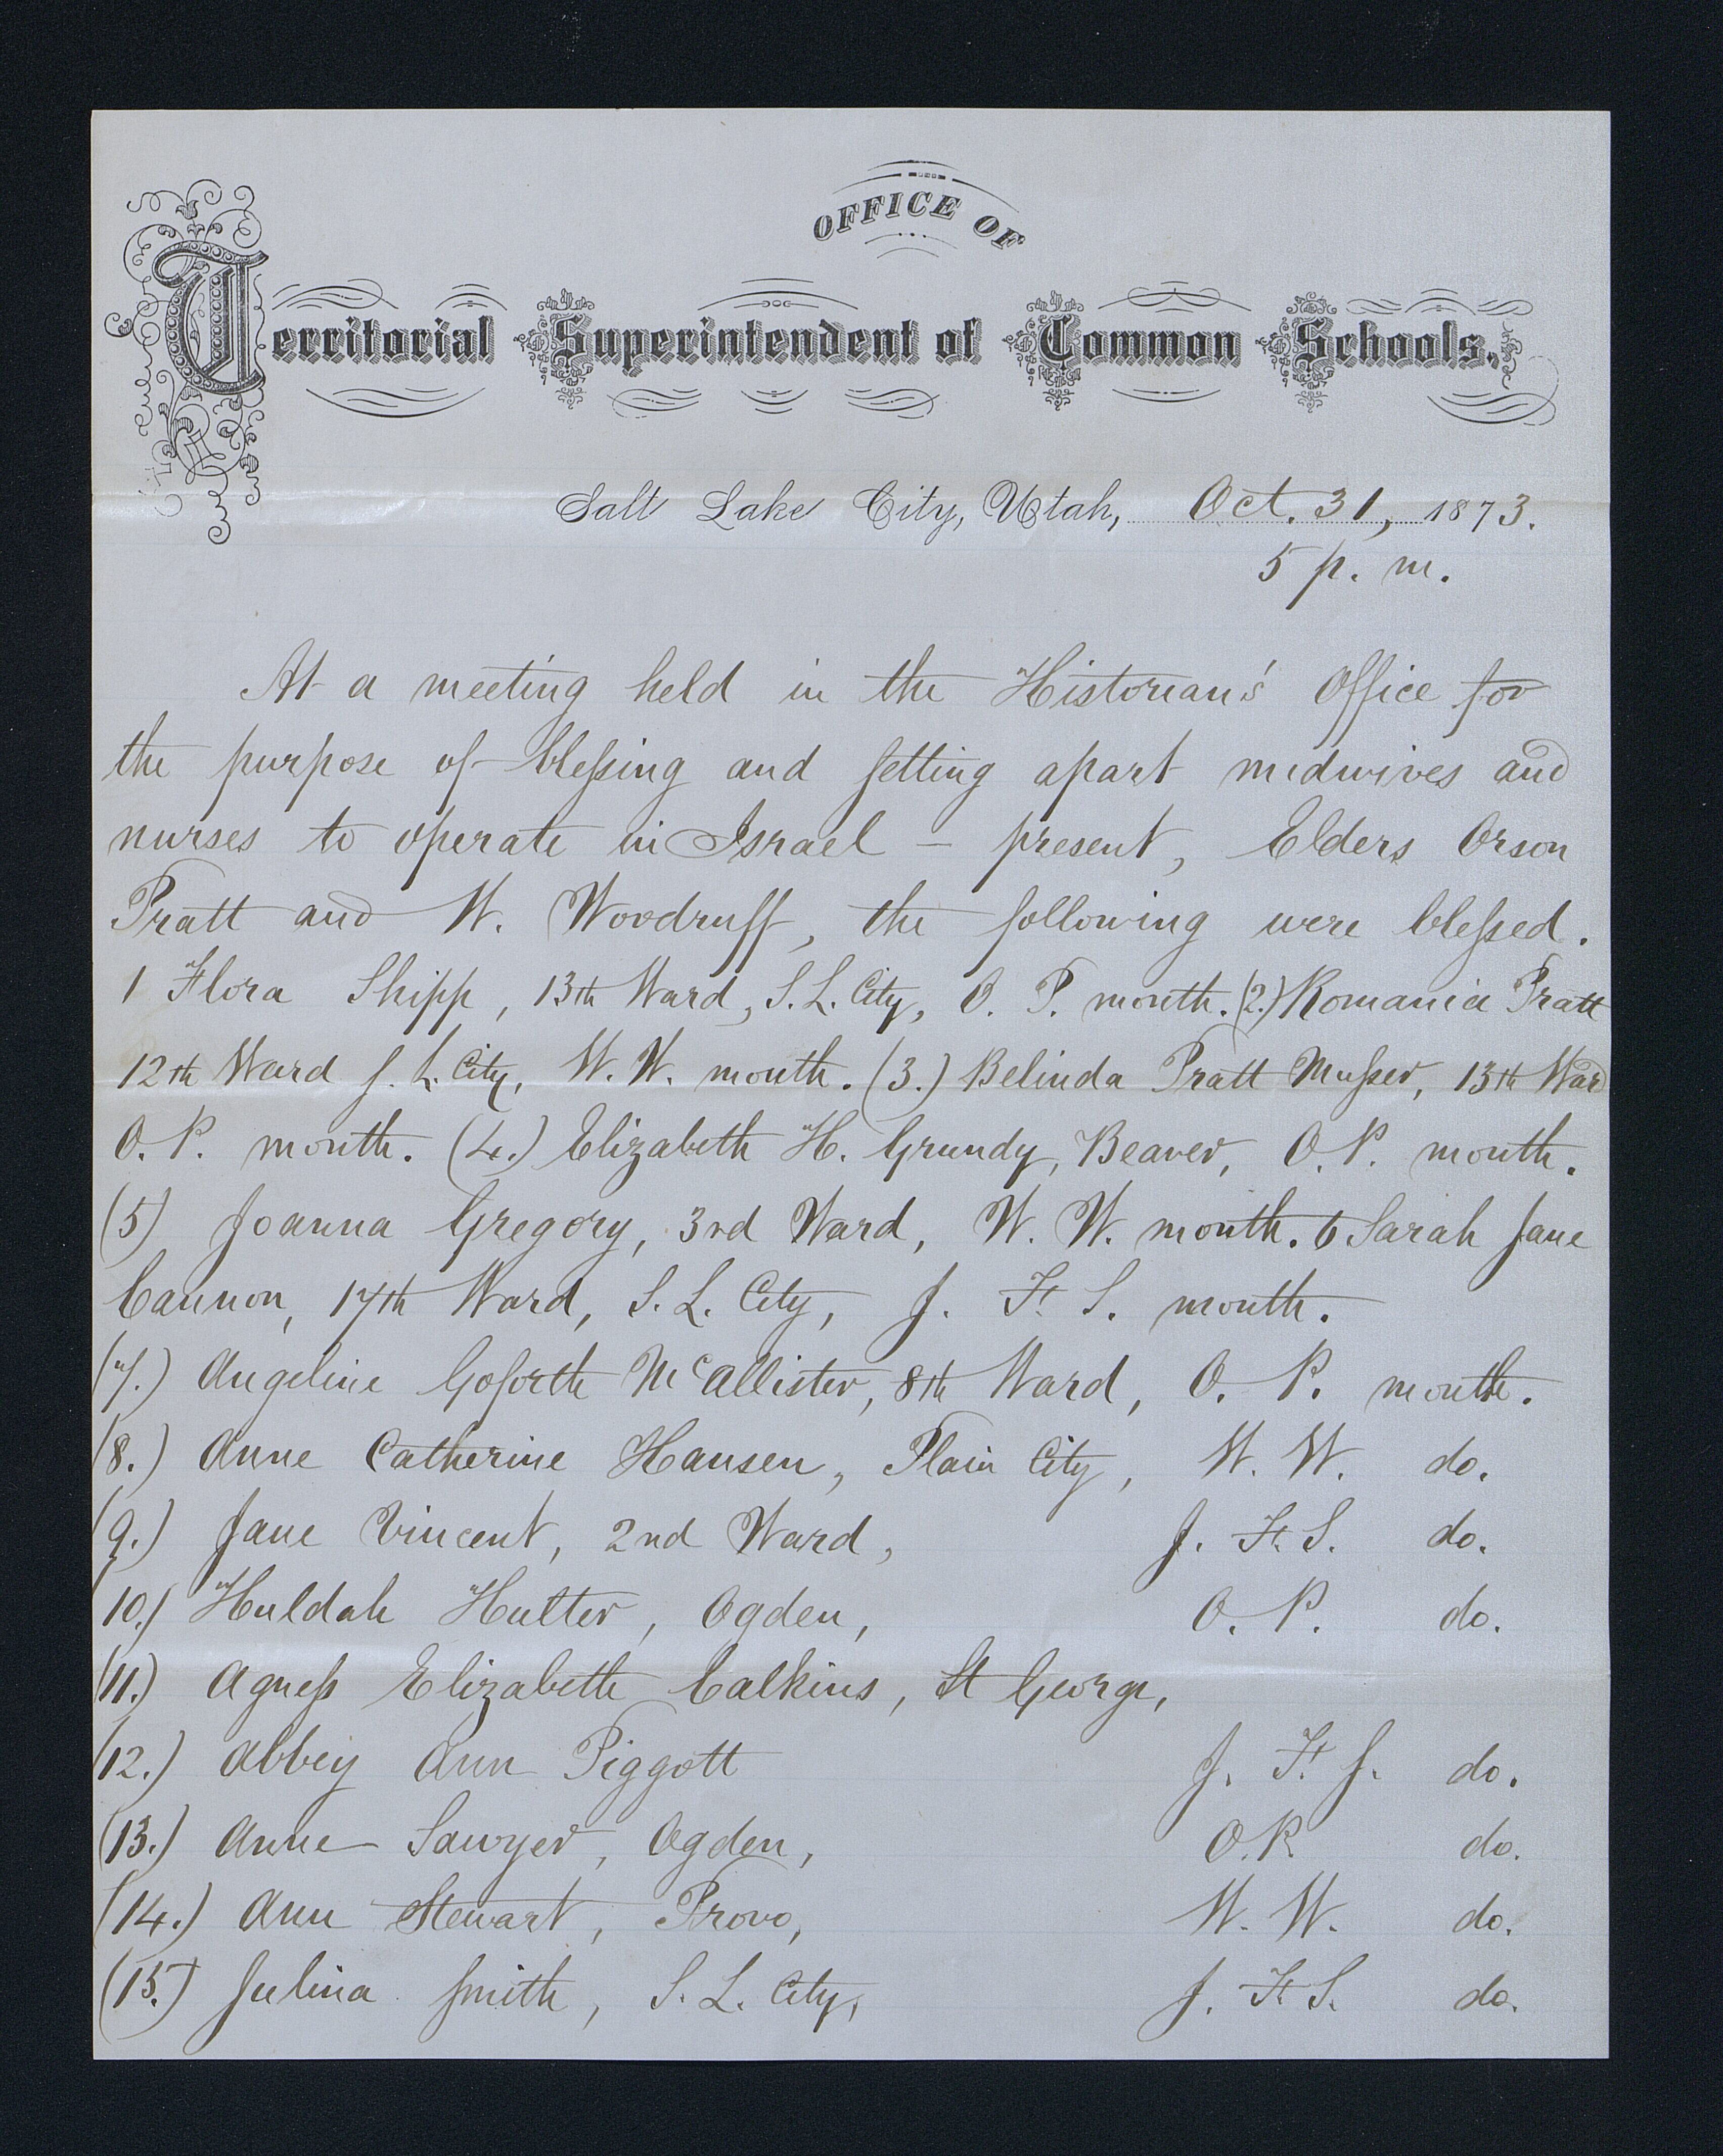 OFFICE OF
Territorial Superintendent of Common Schools,
Salt Lake City, Utah, Oct. 31, 1873.
5 p. m.
At a meeting held in the Historian's Office for
the purpose of blessing and setting apart midwives and
nurses to operate in Israel – present, Elders Orson
Pratt and W. Woodruff, the following were blessed.
1 Flora Shipp, 13th Ward, S. L. City, O. P. mouth. (2.) Romania Pratt
12th Ward S. L. City, W. W. mouth. (3.) Belinda Pratt Musser, 13th Ward
O. P. mouth. (4.) Elizabeth H. Grundy, Beaver, O. P. mouth.
(5) Joanna Gregory, 3rd Ward, W. W. mouth. 6 Sarah Jane
Cannon, 17th Ward, S. L. City, J. F. S. mouth.
(7.) Angeline Goforth McAllister, 8th Ward, O. P. mouth.
(8.) Anne Catherine Hansen, Plain City, W. W. do.
(9.) Jane Vincent, 2nd Ward, J. F. S. do.
10.) Huldah Hutter, Ogden, O. P. do.
(11.) Agness Elizabeth Calkins, St George,
(12.) Abbey Ann Piggott J. F. S. do.
(13.) Anne Sawyer, Ogden, O. P. do.
(14.) Ann Stewart, Provo, W. W. do.
(15.) Julina Smith, S. L. City, J. F. S. do.